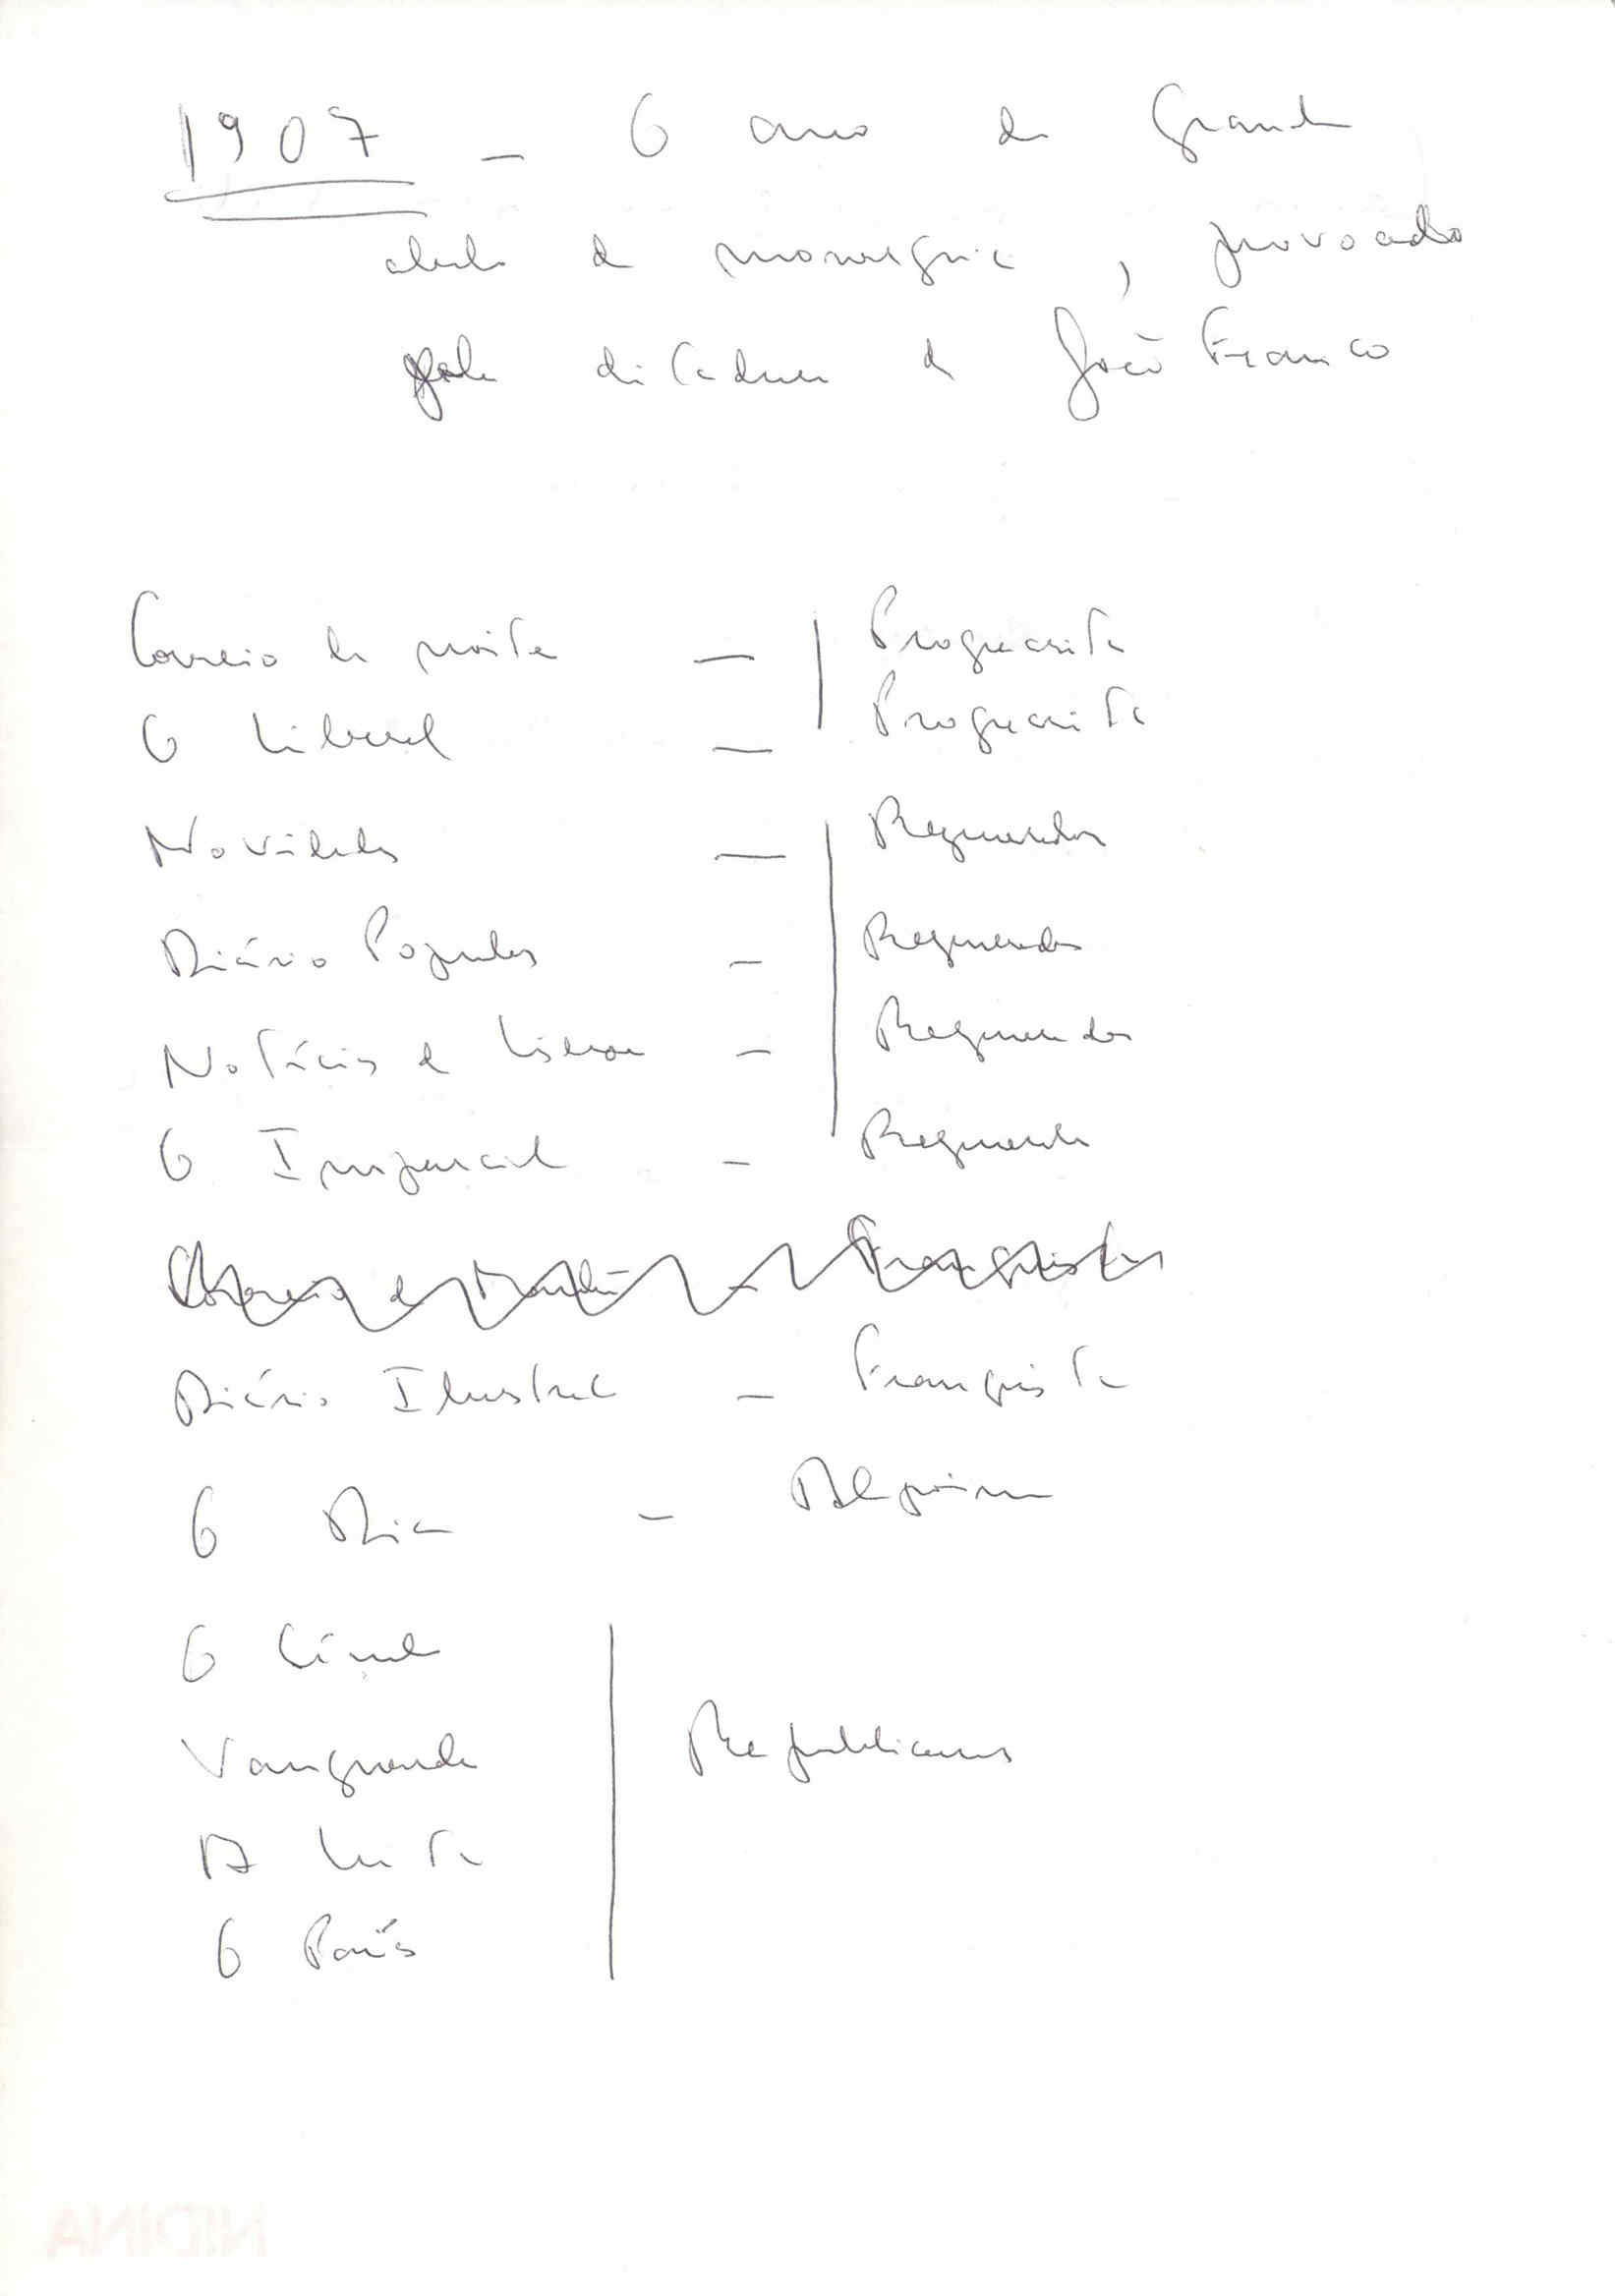 1907 — O ano da grande
abalo da monarquia, provocado
pela ditadura de João Franco
Correio da noite — Progressista
O Liberal — Progressista
Novidades — Regenerador
Diário Popular — Regenerador
Notícias de Lisboa — Regenerador
O Imparcial — Regenerador
Correio da — Franquista
Diário Ilustrado — Franquista
O Dia —
O
Vanguarda Republicanos
A Luta
O País
NIDINA